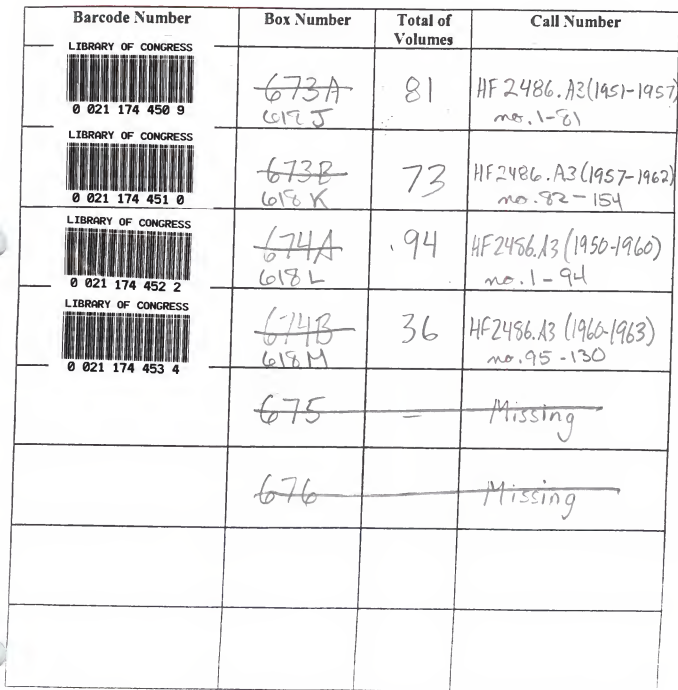 Barcode Number Box Number Total of Volumes Call Number
LIBRARY OF CONGRESS
0 021 174 450 9
673A 81 HF 2486.A3(1951-1957)
no. 1-81
LIBRARY OF CONGRESS
0 021 174 451 0
673B 73 HF2486.A3(1957-1962)
618 K no. 82-154
LIBRARY OF CONGRESS
0 021 174 452 2
674A 94 HF2486.A3 (1950-1960)
618 L no. 1-94
LIBRARY OF CONGRESS
0 021 174 453 4
674B 36 HF2486.A3 (1960-1963)
618 M no. 95-130
675 Missing
676 Missing